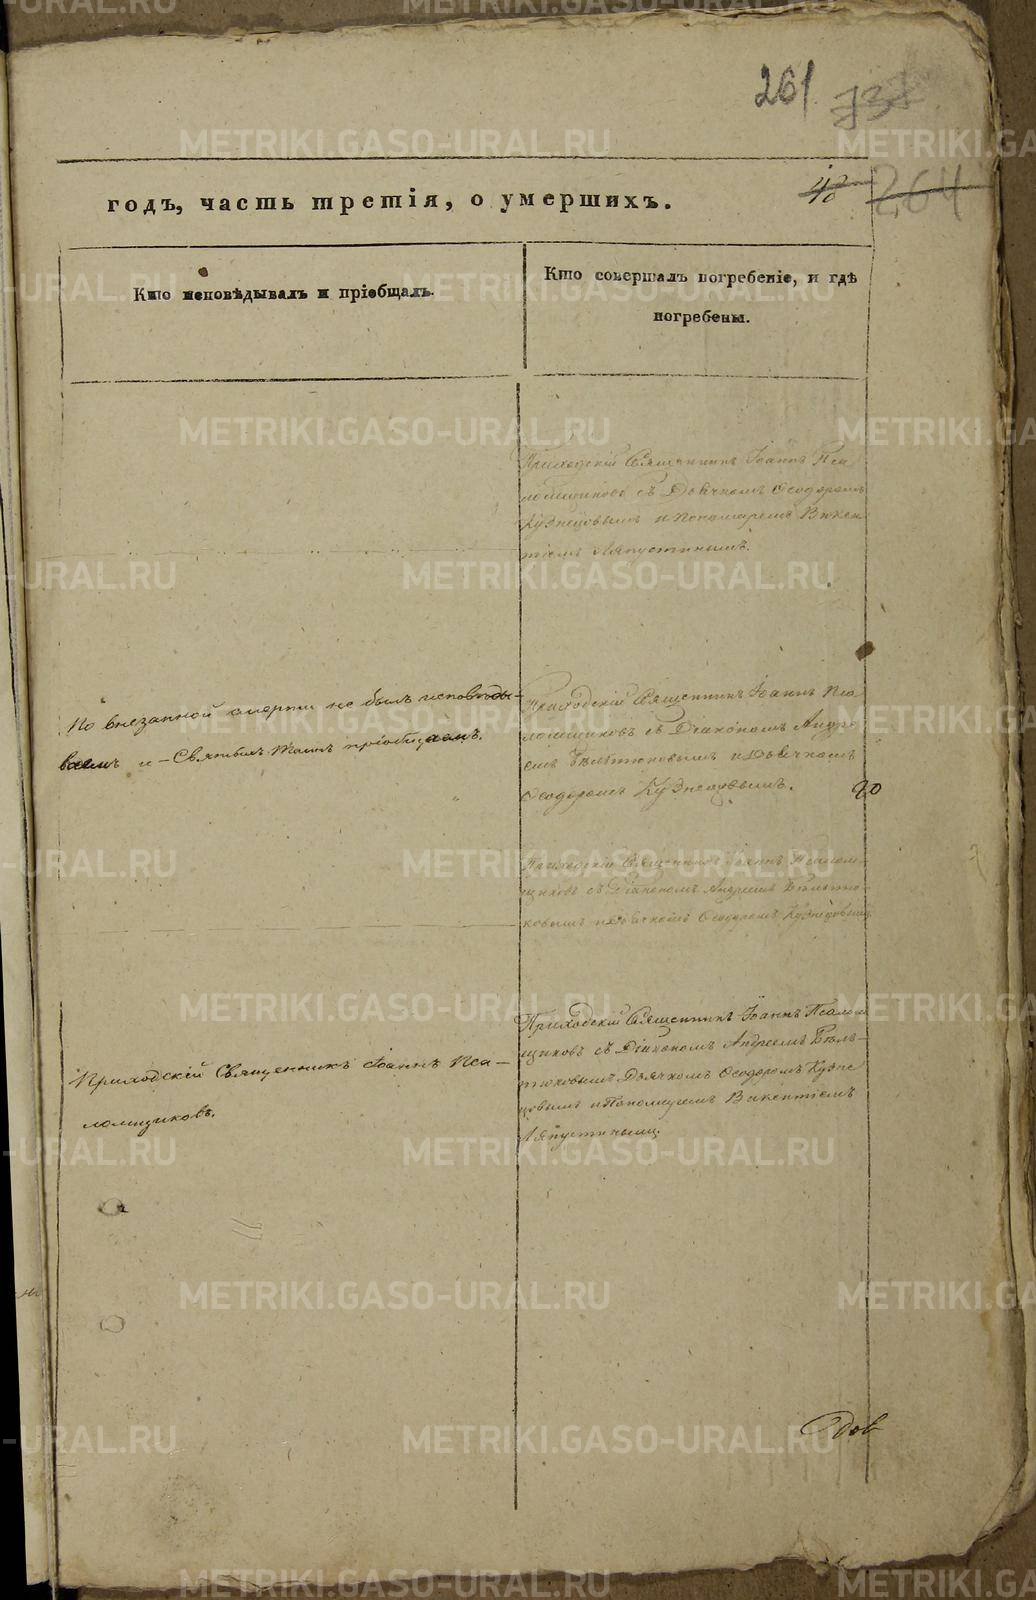 261
264
годъ, часть третія, о умершихъ.
Кто исповѣдывалъ и пріобщалъ.
Кто совершалъ погребеніе, и гдѣ
погребены.
Приходскій Священникъ Іоаннъ Пса
ломщиковъ съ Дьячкомъ Ѳеодоромъ
Кузнецовымъ и Пономаремъ Викен
тіемъ Ляпустинымъ.
По внезапной смерти не былъ исповѣды-
ваемъ и Святыхъ Таинъ пріобщаемъ.
Приходскій Священникъ Іоаннъ Пса
ломщиковъ съ Діакономъ Андре
емъ Бѣльтюковымъ и Дьячкомъ
Ѳеодоромъ Кузнецовымъ.
Приходскій Священникъ Іоаннъ Псалом-
щиковъ съ Діакономъ Андреемъ Бѣльтю-
ковымъ и Дьячкомъ Ѳеодоромъ Кузнецовымъ
Приходскій Священникъ Іоаннъ Пса-
ломщиковъ.
Приходскій Священникъ Іоаннъ Псалом
щиковъ съ Діакономъ Андреемъ Бѣль-
тюковымъ Дьячкомъ Ѳеодоромъ Кузне
цовымъ и Пономаремъ Викентіемъ
Ляпустинымъ.
METRIKI.GASO-URAL.RU